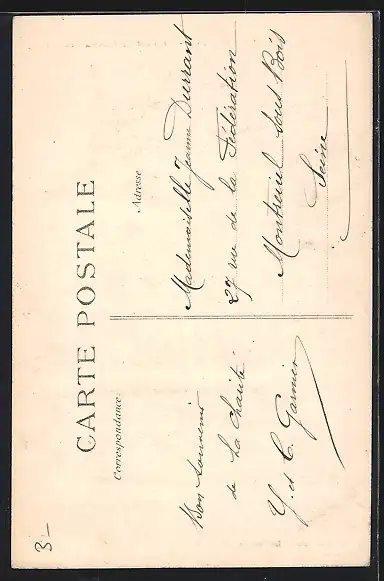 CARTE POSTALE
Correspondance
Adresse
Bon souvenir
de La Charité
Y. et C. Garnier
Mademoiselle Jeanne Durrant
27 rue de la Fédération
Montreuil sous Bois
Seine
3-